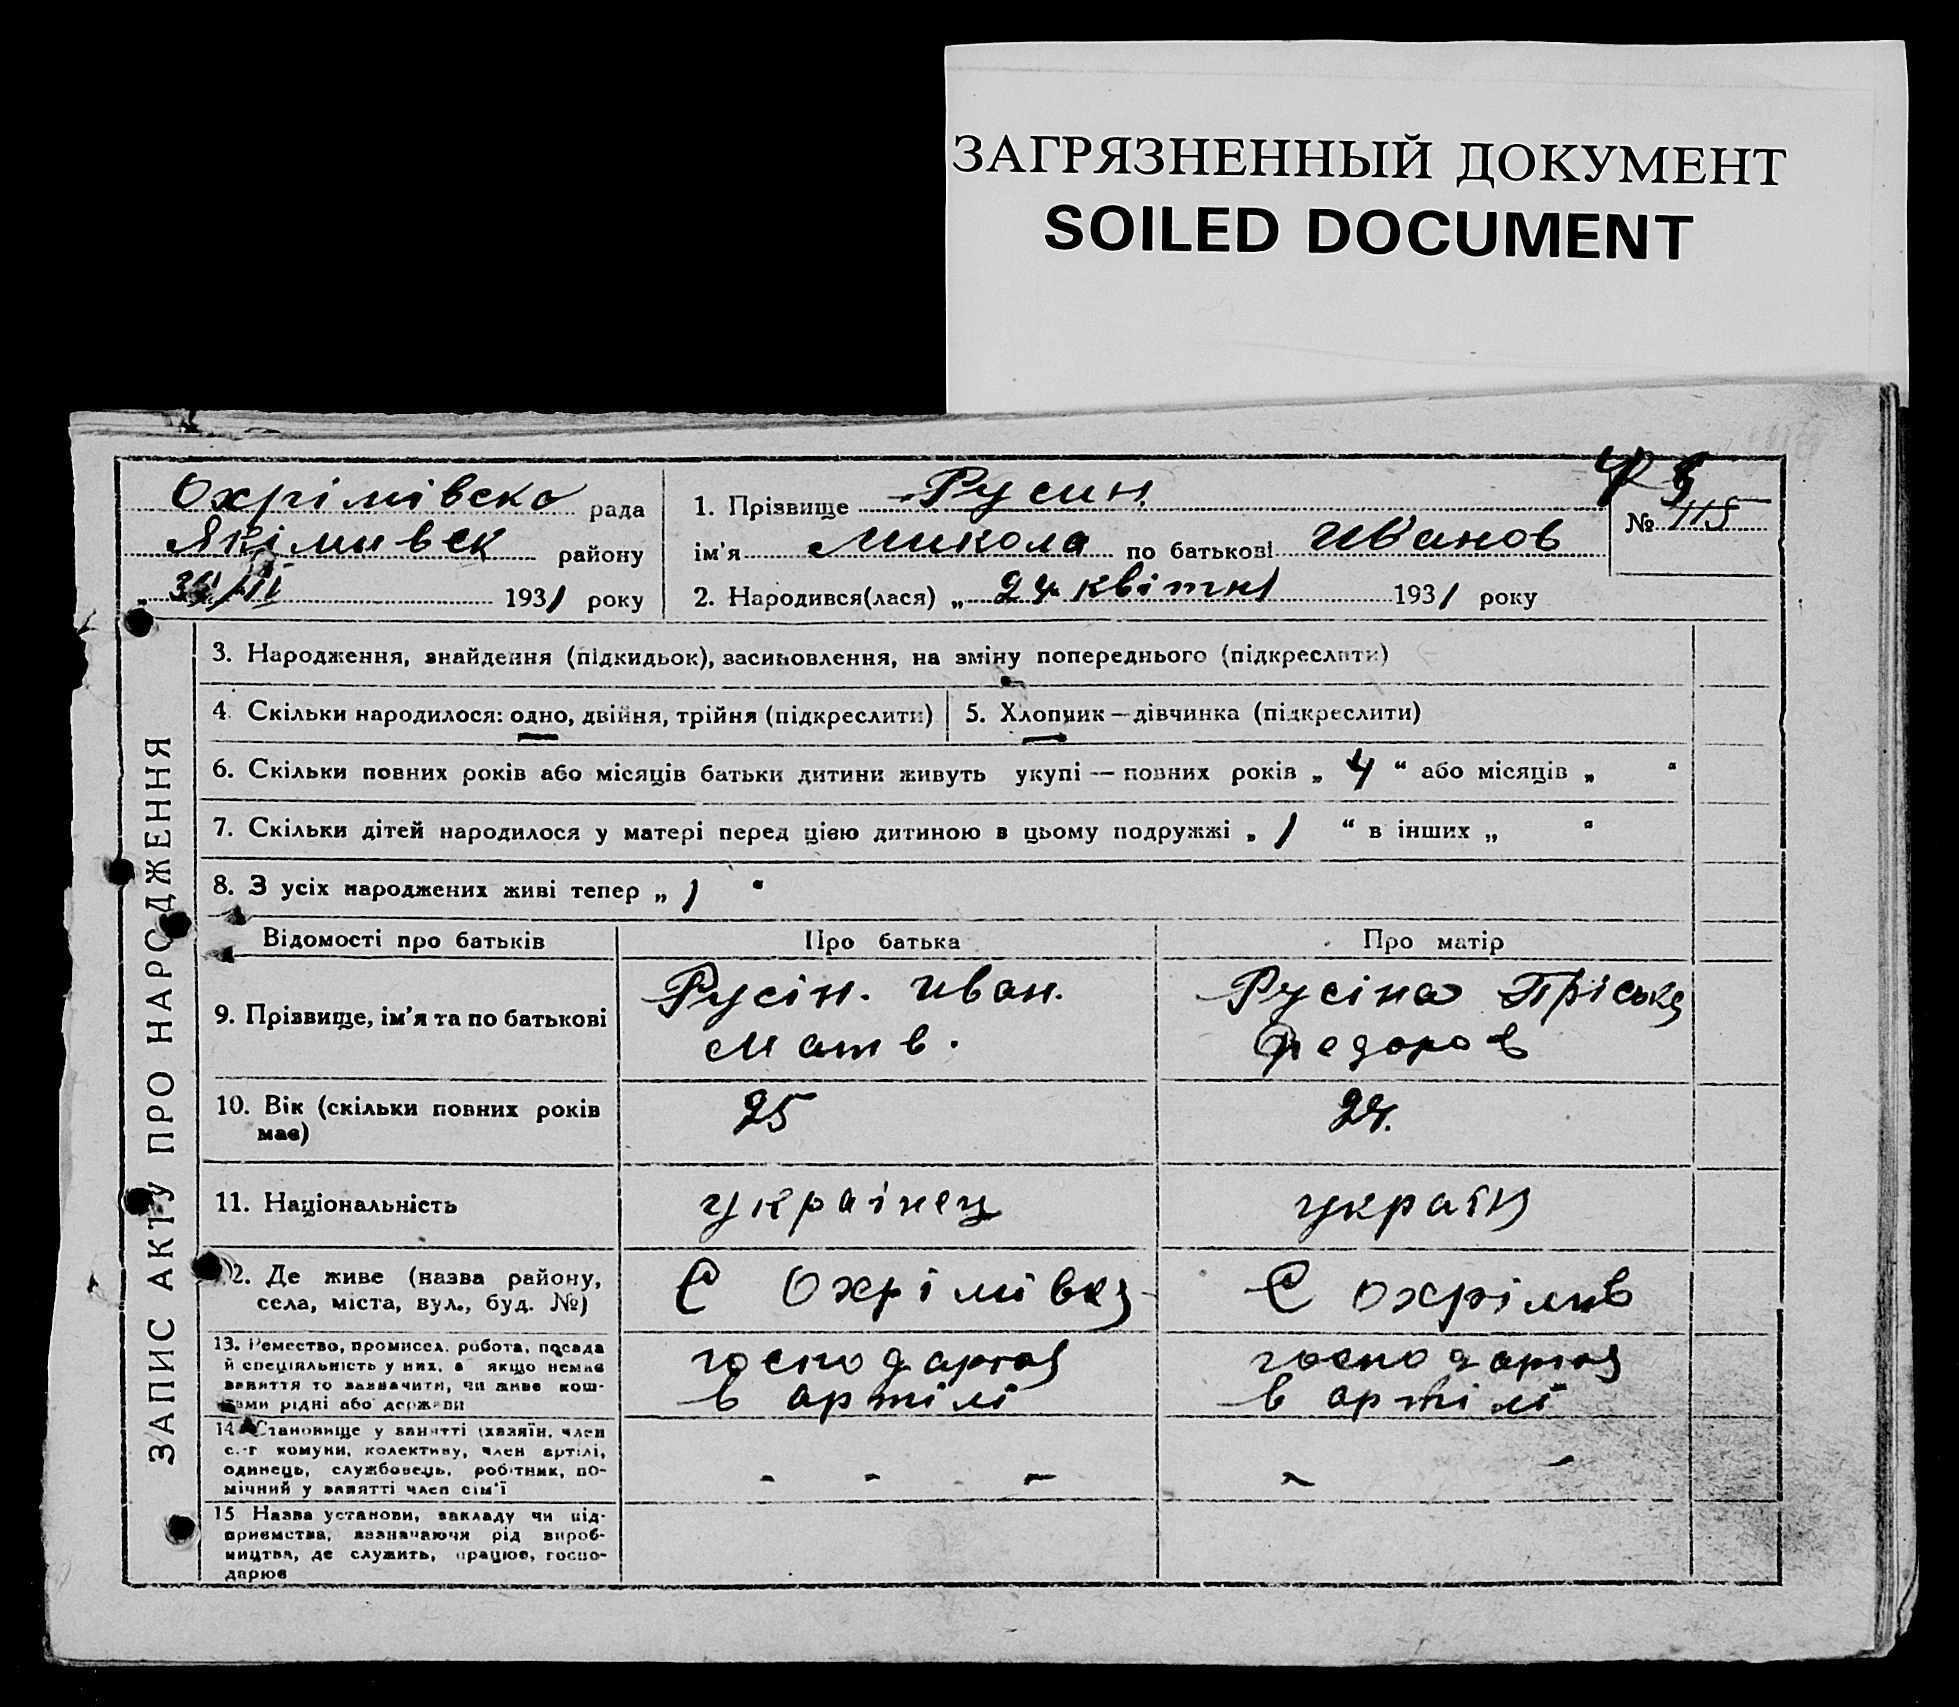 ЗАГРЯЗНЕННЫЙ ДОКУМЕНТ
SOILED DOCUMENT
Охрімівська рада
Якімивськ району
1931 року
1. Прізвище Русин
ім'я Микола по батькові Иванов
2. Народився(лася) „ 24 квітня 1931 року
№ 115
ЗАПИС АКТУ ПРО НАРОДЖЕННЯ
3. Народження, знайдення (підкидьок), засиновлення, на зміну попереднього (підкреслити)
4. Скільки народилося: одно, двійня, трійня (підкреслити)
5. Хлопчик — дівчинка (підкреслити)
6. Скільки повних років або місяців батьки дитини живуть укупі — повних років „ 4 “ або місяців „ “
7. Скільки дітей народилося у матері перед цією дитиною в цьому подружжі „ 1 “ в інших „ “
8. З усіх народжених живі тепер „ 1 “
Відомості про батьків Про батька Про матір
9. Прізвище, ім'я та по батькові
Русін. Иван.
Матв.
Русіна Пріська
Федоров
10. Вік (скільки повних років має)
25
24.
11. Національність українець україн
12. Де живе (назва району,
села, міста, вул., буд. №)
С Охрімівка
С Охрімив
13. Ремество, промисел, робота, посада
й спеціяльність у них, а якщо немає
заняття то зазначити, чи живе кош-
тами рідні або держави
господарюя
в артілі
господарюя
в артілі
14. Становище у занятті (хазяїн, член
с.-г комуни, колективу, член артілі,
одинець, службовець, робітник, по-
мічний у занятті член сім'ї
- - -
- -
15 Назва установи, закладу чи під-
приємства, зазначаючи рід вироб-
ництва, де служить, працює, госпо-
дарює